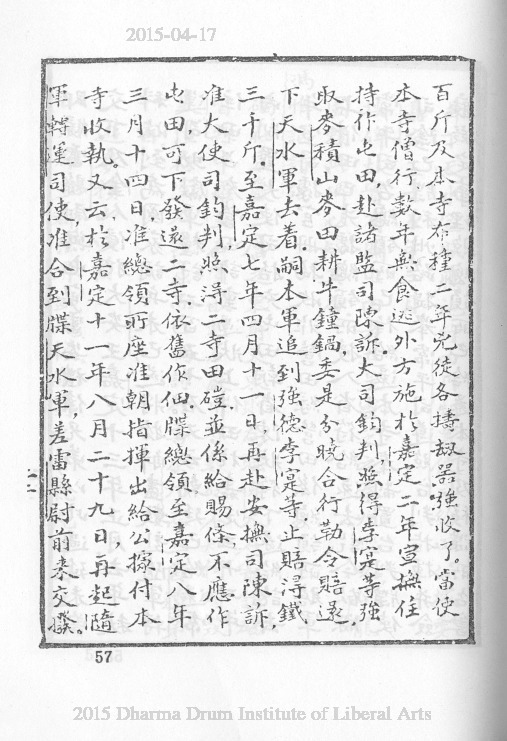 2015-04-17
百斤及本寺布種二年兇徒各持刼器強收了。當使
本寺僧行,數年無食逃外方施於嘉定二年宣撫任
持作屯田,赴諸監司陳訴,大司鈞判,照得李寔等強
取麥積山麥田耕牛鐘鍋,委是分曉合行勒令賠還,
下天水軍去着,嗣本軍追到強德李寔等,止賠得鐵
三千斤。至嘉定七年四月十一日,再赴安撫司陳訴,
准大使司鈞判,照得二寺田磑,並係給賜條,不應作
屯田,可下發還二寺,依舊作佃,牒總領至嘉定八年
三月十四日,准總領所座准朝指揮出給公據付本
寺收執。又云:於嘉定十一年八月二十九日,再起隨
軍轉運司使,准合到牒天水軍,差雷縣尉前來交撥。
57
2015 Dharma Drum Institute of Liberal Arts